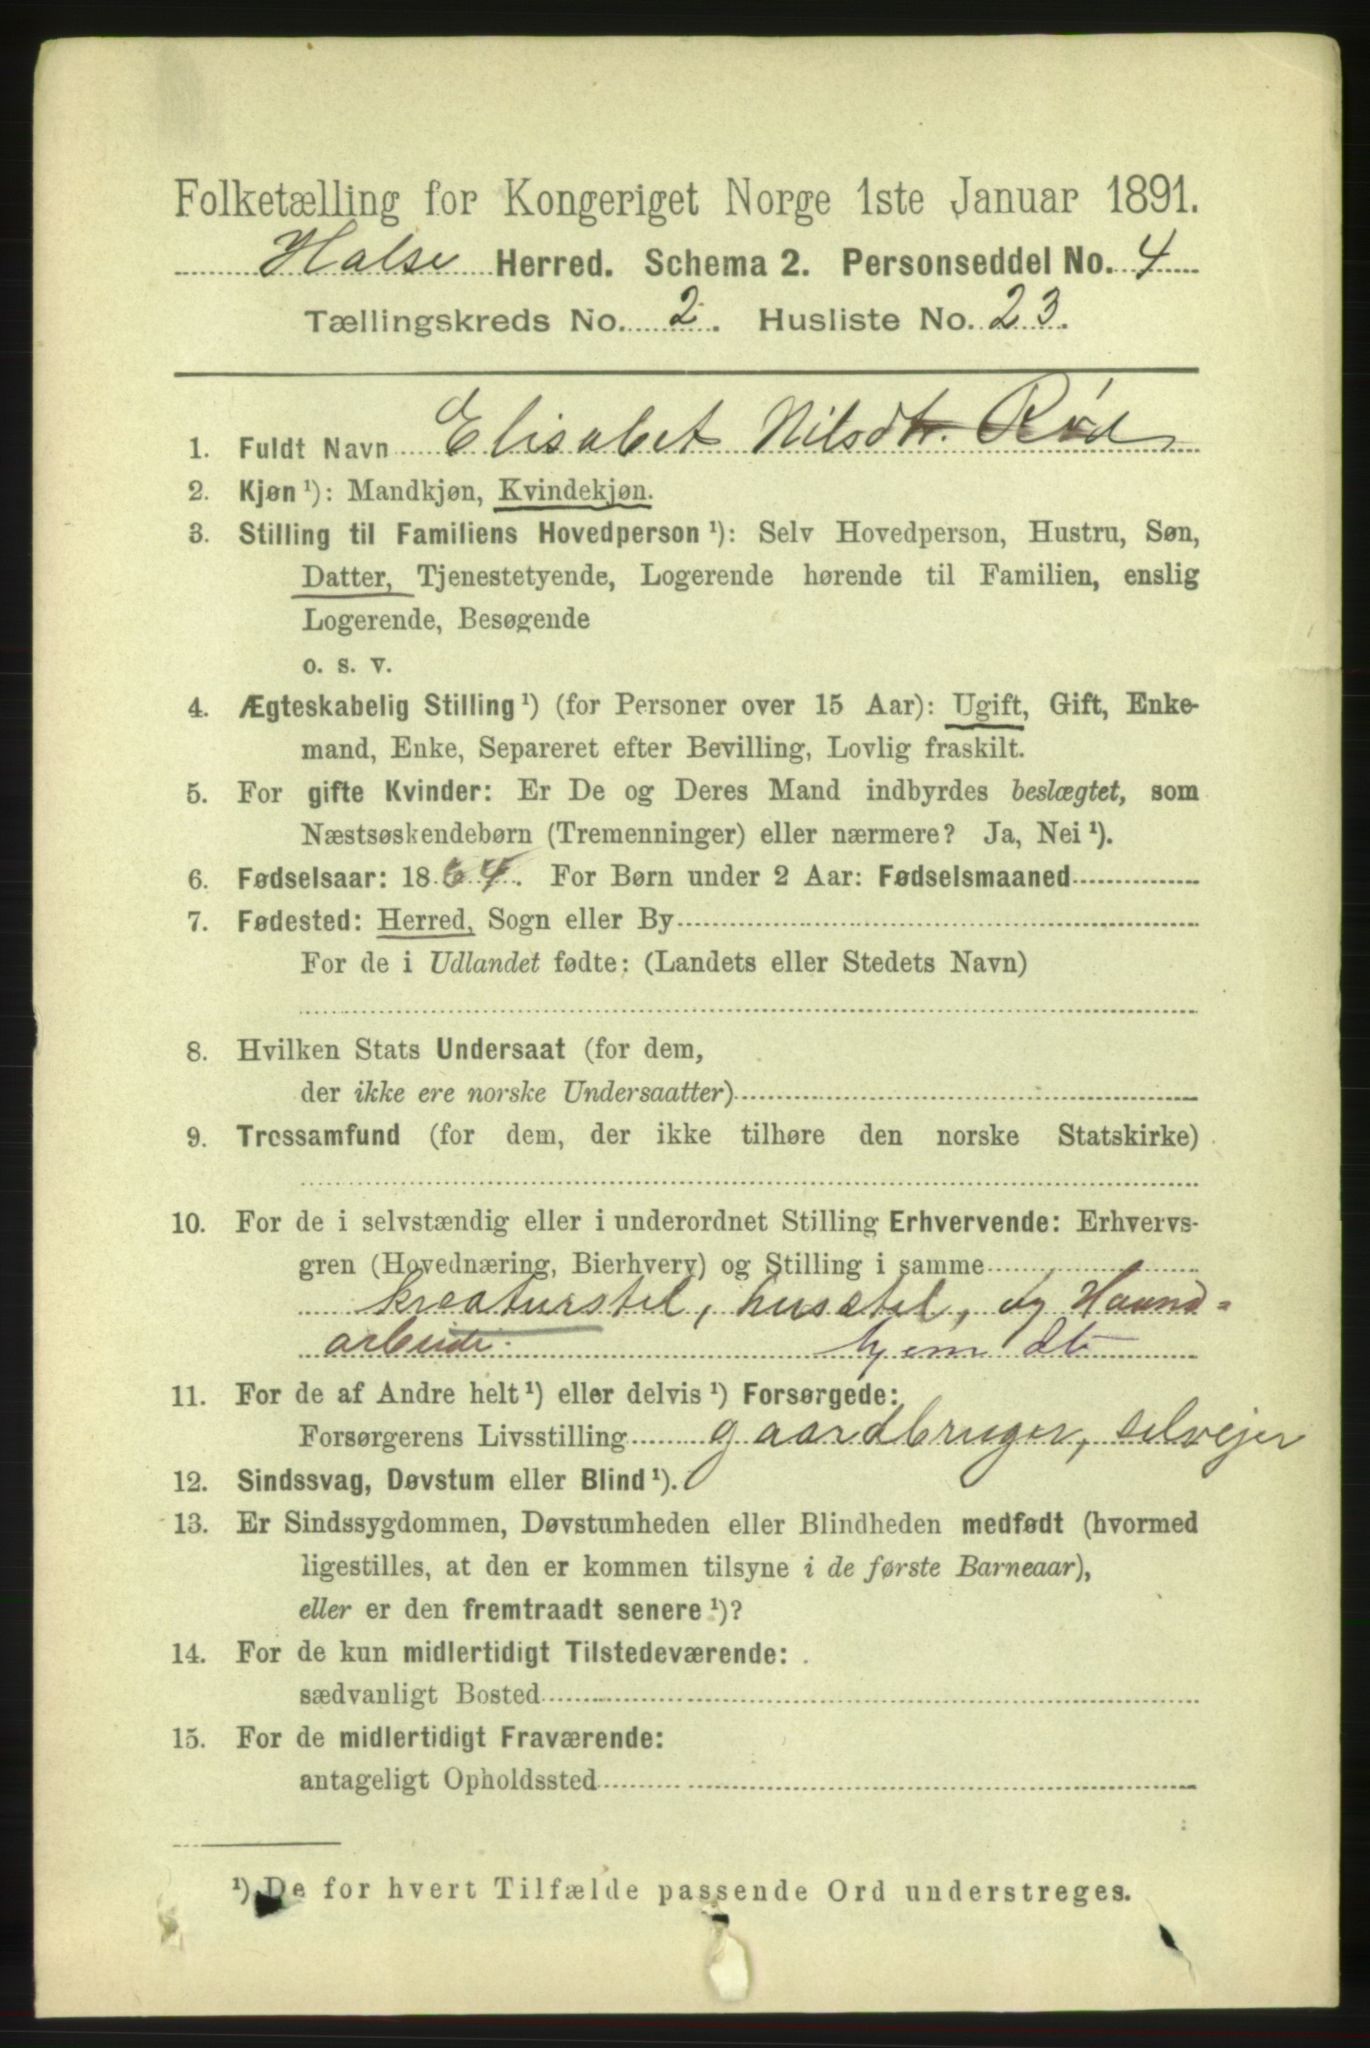 Folketælling for Kongeriget Norge 1ste Januar 1891.
Halse Herred. Schema 2. Personseddel No. 4
Tællingskreds No. 2. Husliste No. 23.
1. Fuldt Navn Elisabet Nilsdtr. Rød
2. Kjøn ¹): Mandkjøn, Kvindekjøn.
3. Stilling til Familiens Hovedperson ¹): Selv Hovedperson, Hustru, Søn,
Datter, Tjenestetyende, Logerende hørende til Familien, enslig
Logerende, Besøgende
o. s. v.
4. Ægteskabelig Stilling ¹) (for Personer over 15 Aar): Ugift, Gift, Enke-
mand, Enke, Separeret efter Bevilling, Lovlig fraskilt.
5. For gifte Kvinder: Er De og Deres Mand indbyrdes beslægtet, som
Næstsøskendebørn (Tremenninger) eller nærmere? Ja, Nei ¹).
6. Fødselsaar: 1864. For Børn under 2 Aar: Fødselsmaaned
7. Fødested: Herred, Sogn eller By
For de i Udlandet fødte: (Landets eller Stedets Navn)
8. Hvilken Stats Undersaat (for dem,
der ikke ere norske Undersaatter)
9. Trossamfund (for dem, der ikke tilhøre den norske Statskirke)
10. For de i selvstændig eller i underordnet Stilling Erhvervende: Erhvervs-
gren (Hovednæring, Bierhverv) og Stilling i samme
kreaturstel, husstel, og Haand-
arbeide. hjem dtr
11. For de af Andre helt ¹) eller delvis ¹) Forsørgede:
Forsørgerens Livsstilling gaardbruger, selvejer
12. Sindssvag, Døvstum eller Blind ¹).
13. Er Sindssygdommen, Døvstumheden eller Blindheden medfødt (hvormed
ligestilles, at den er kommen tilsyne i de første Barneaar),
eller er den fremtraadt senere ¹)?
14. For de kun midlertidigt Tilstedeværende:
sædvanligt Bosted
15. For de midlertidigt Fraværende:
antageligt Opholdssted
¹) De for hvert Tilfælde passende Ord understreges.